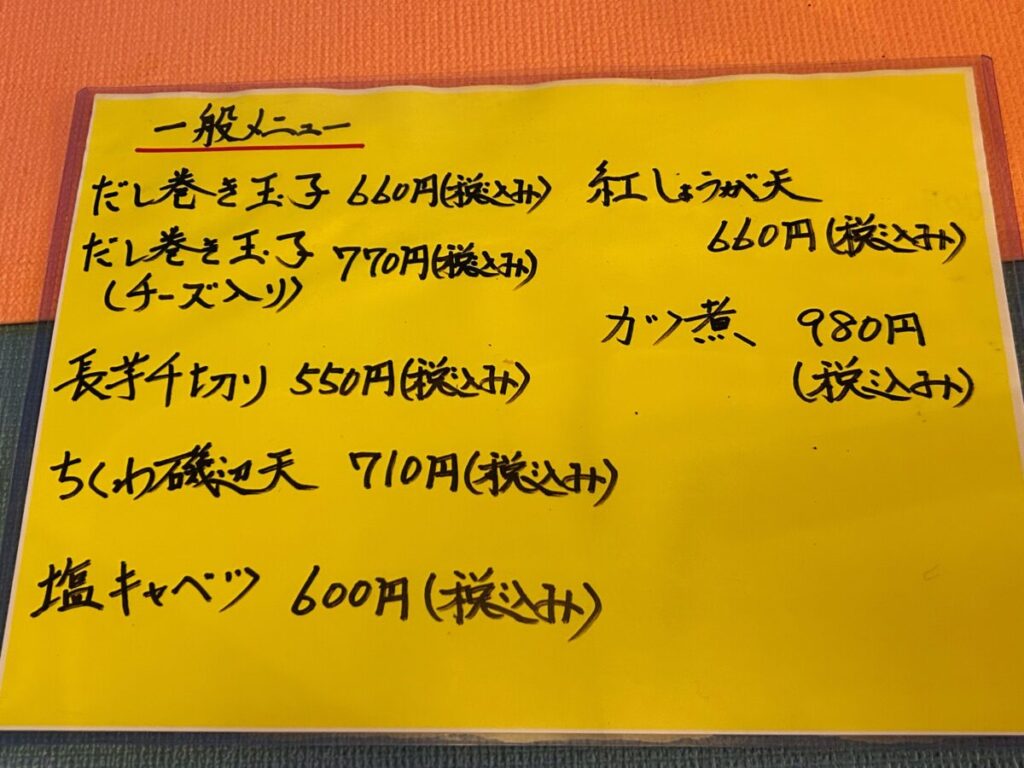 一般メニュー
だし巻き玉子 660円(税込み)
だし巻き玉子 770円(税込み)
(チーズ入り)
長芋千切り 550円(税込み)
ちくわ磯辺天 710円(税込み)
塩キャベツ 600円(税込み)
紅しょうが天
660円(税込み)
カツ煮 980円
(税込み)